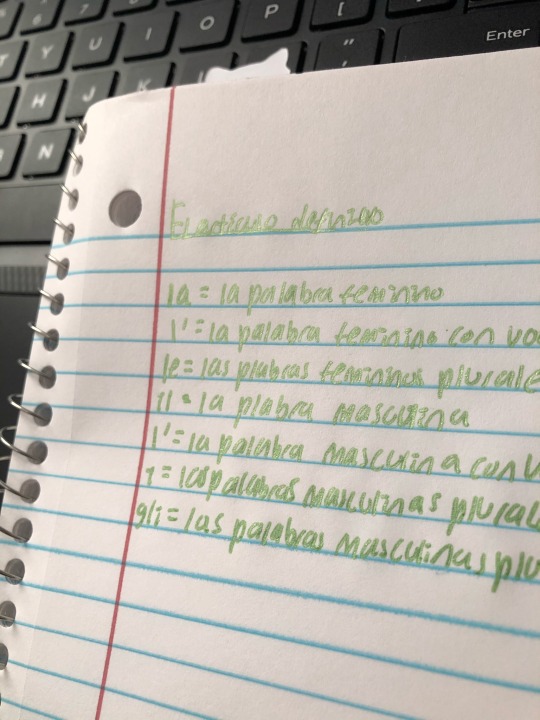 O P [
Y U I
" Enter
H J K L
N
El articulo definido
la = la palabra feminino
l' = la palabra feminino con vo
le = las plabras femininos plurale
il = la plabra masculina
l' = la palabra masculina con v
i = las palabras masculinas plural
gli = las palabras masculinas plu